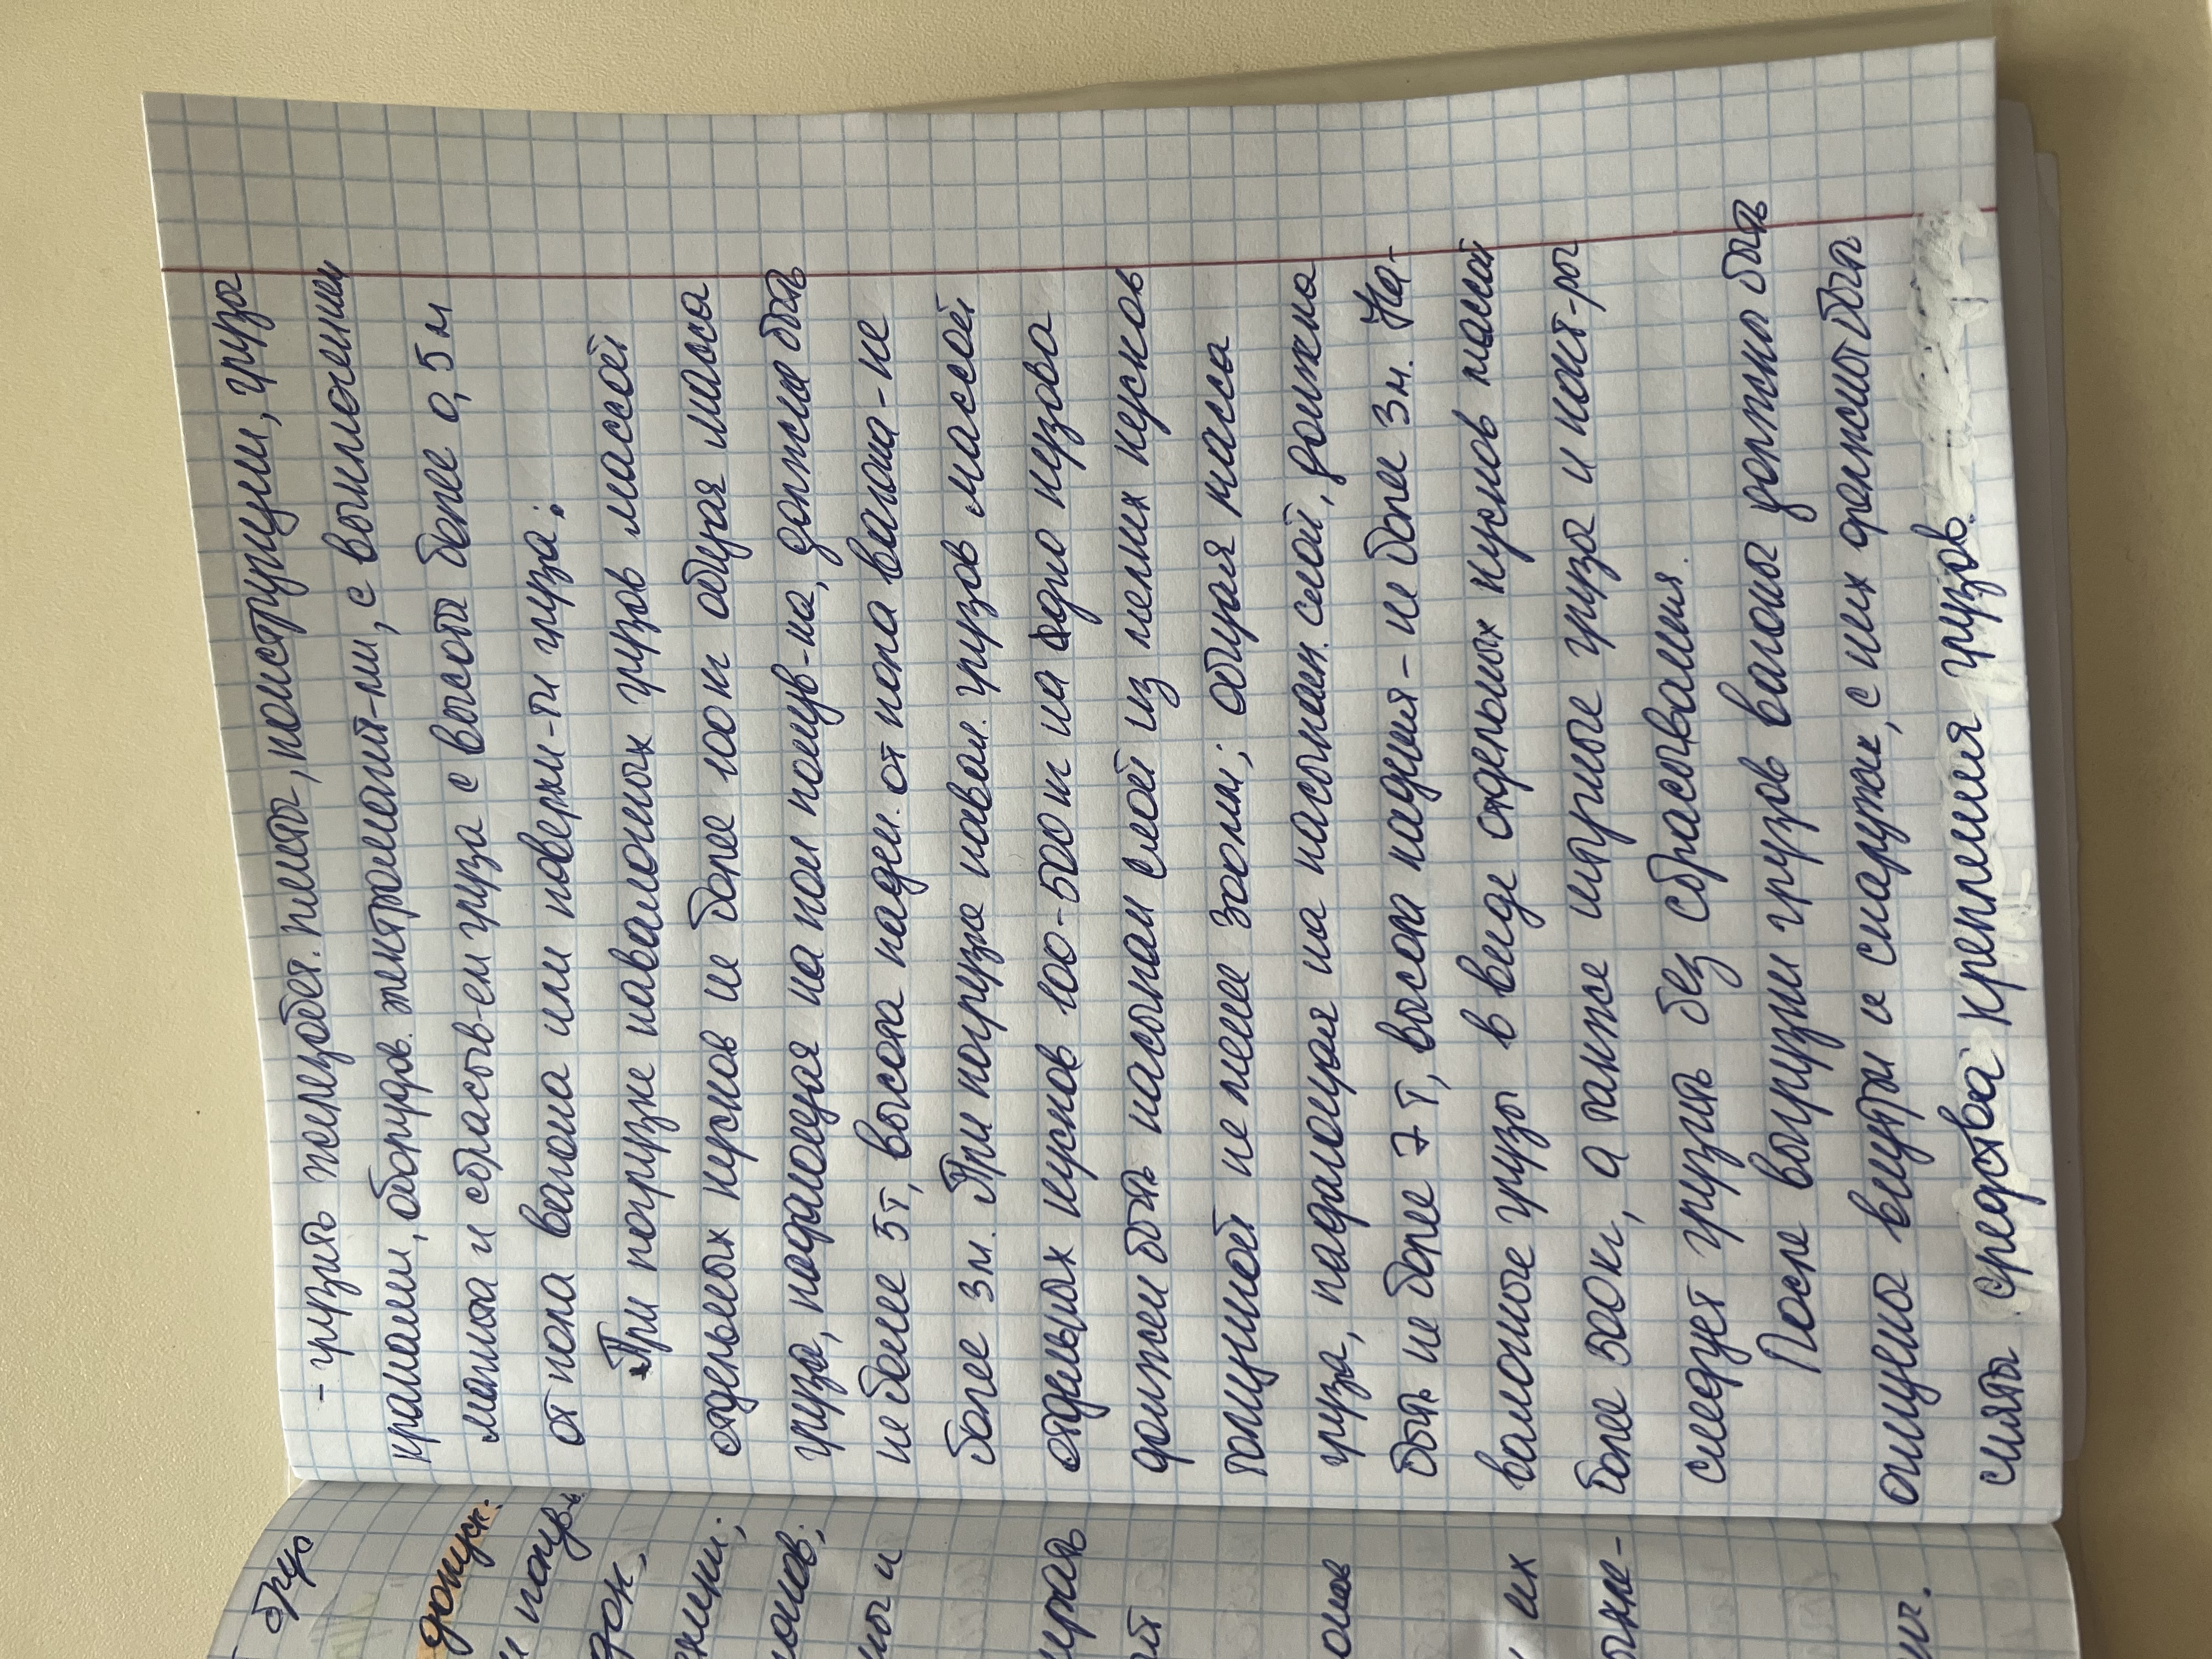 - грузить железобет. плиты, конструкции, груза
кранами, оборудов. электромагнит-ми, с выключением
магнита и сбрасыв-ем груза с высоты более 0,5 м
от пола вагона или поверхн-ти груза;
При погрузке навалочных грузов массой
отдельных кусков не более 100 кг общая масса
груза, падающая на пол полув-на, должна быть
не более 5т, высота паден. от пола вагона - не
более 3м. При погрузке навал. грузов массой
отдельных кусков 100-500 кг на дно кузова
должен быть насыпан слой из мелких кусков
толщиной не менее 300мм; общая масса
груза, падающая на насыпан. слой, должна
быть не более 7т, высота падения - не более 3м. На-
валочные грузы в виде отдельных кусков массой
более 500кг, а также штучные груза и конт-ры
следует грузить без сбрасывания.
После выгрузки грузов вагоны должны быть
очищены внутри и снаружи, с них должны быть
сняты средства крепления грузов.
брус
допуск.
и полув.
их